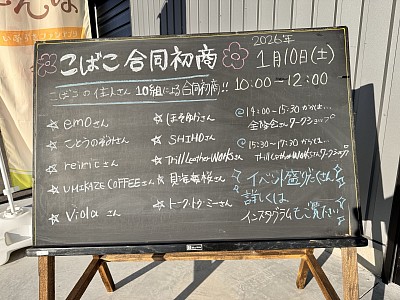 こばこ 合同初商
2026年
1月10日(土)
10:00〜12:00
こばこの住人さん 10組による合同初商!!
☆ emoさん
☆ ことりのおみせさん
☆ reiricさん
☆ UMIKAZE COFFEEさん
☆ Violaさん
☆ SHIHOさん
☆ ThrillLeatherWorksさん
☆ トークトゥミーさん
@14:00〜15:30からは…
さんワークショップ
@15:30〜17:30からは…
ThrillLeatherWorksさんワークショップ
イベント盛りだくさん
詳しくは
インスタグラムをご覧ください